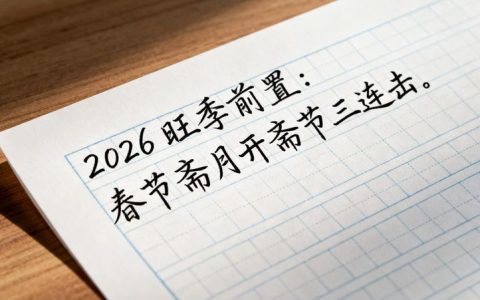 2026 旺季前置：
春节斋月开斋节三连击。